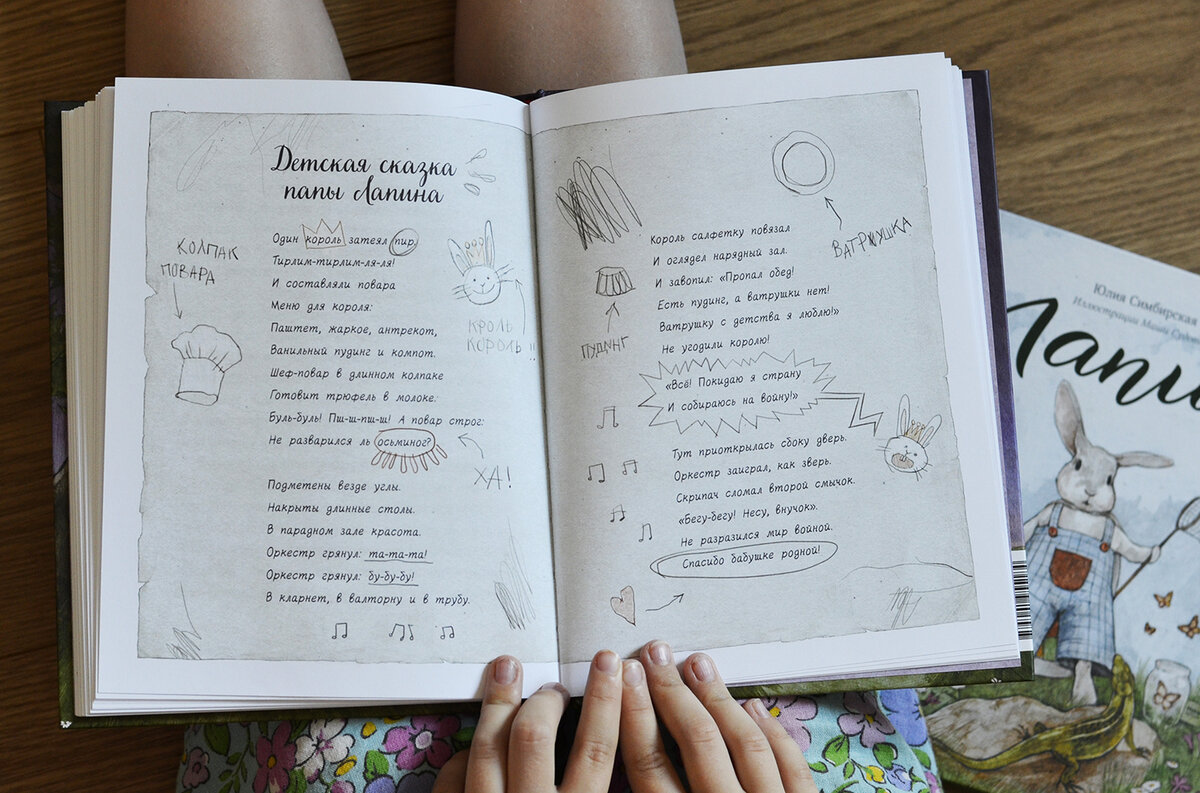 Детская сказка
папы Лапина
Один король затеял пир.
Тирлим-тирлим-ля-ля!
И составляли повара
Меню для короля:
Паштет, жаркое, антрекот,
Ванильный пудинг и компот.
Шеф-повар в длинном колпаке
Готовит трюфель в молоке.
Буль-буль! Пш-ш-пш-ш! А повар строг:
Не разварился ль осьминог?
КОЛПАК
ПОВАРА
КРОЛЬ
КОРОЛЬ!!
ХА!
Подметены везде углы.
Накрыты длинные столы.
В парадном зале красота.
Оркестр грянул: та-та-та!
Оркестр грянул: бу-бу-бу!
В кларнет, в валторну и в трубу.
ВАТРУШКА
Король салфетку повязал
И оглядел нарядный зал.
И завопил: «Пропал обед!
Есть пудинг, а ватрушки нет!
Ватрушку с детства я люблю!»
Не угодили королю!
ПУДИНГ
«Всё! Покидаю я страну
И собираюсь на войну!»
Тут приоткрылась сбоку дверь.
Оркестр заиграл, как зверь.
Скрипач сломал второй смычок.
«Бегу-бегу! Несу, внучок».
Не разразился мир войной.
Спасибо бабушке родной!
Юлия Симбирская
Иллюстрации
Лапи